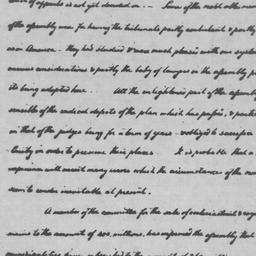 of appeals is not yet decided on -- Some of the most able men
of the assembly were for having the tribunals partly ambulant & partly
as in America. they had studied & were much pleased with our system
various considerations & partly the body of lawyers in the assembly pr
its being adopted here. All the enlightened part of the assembly
sensible of the radical defects of the plan which has passed, & partic
in that of the judges being for a term of years - & obliged to sacrifice
-larity in order to preserve their places. It is probable that a
experience will assist many in which the circumstances of the mo
seem to render inevitable at present.
A member of the committee for the sale of ecclesiastical & roy
mains to the amount of 400. millions, has informed the assembly that
municipalities have subscribed to the amount of